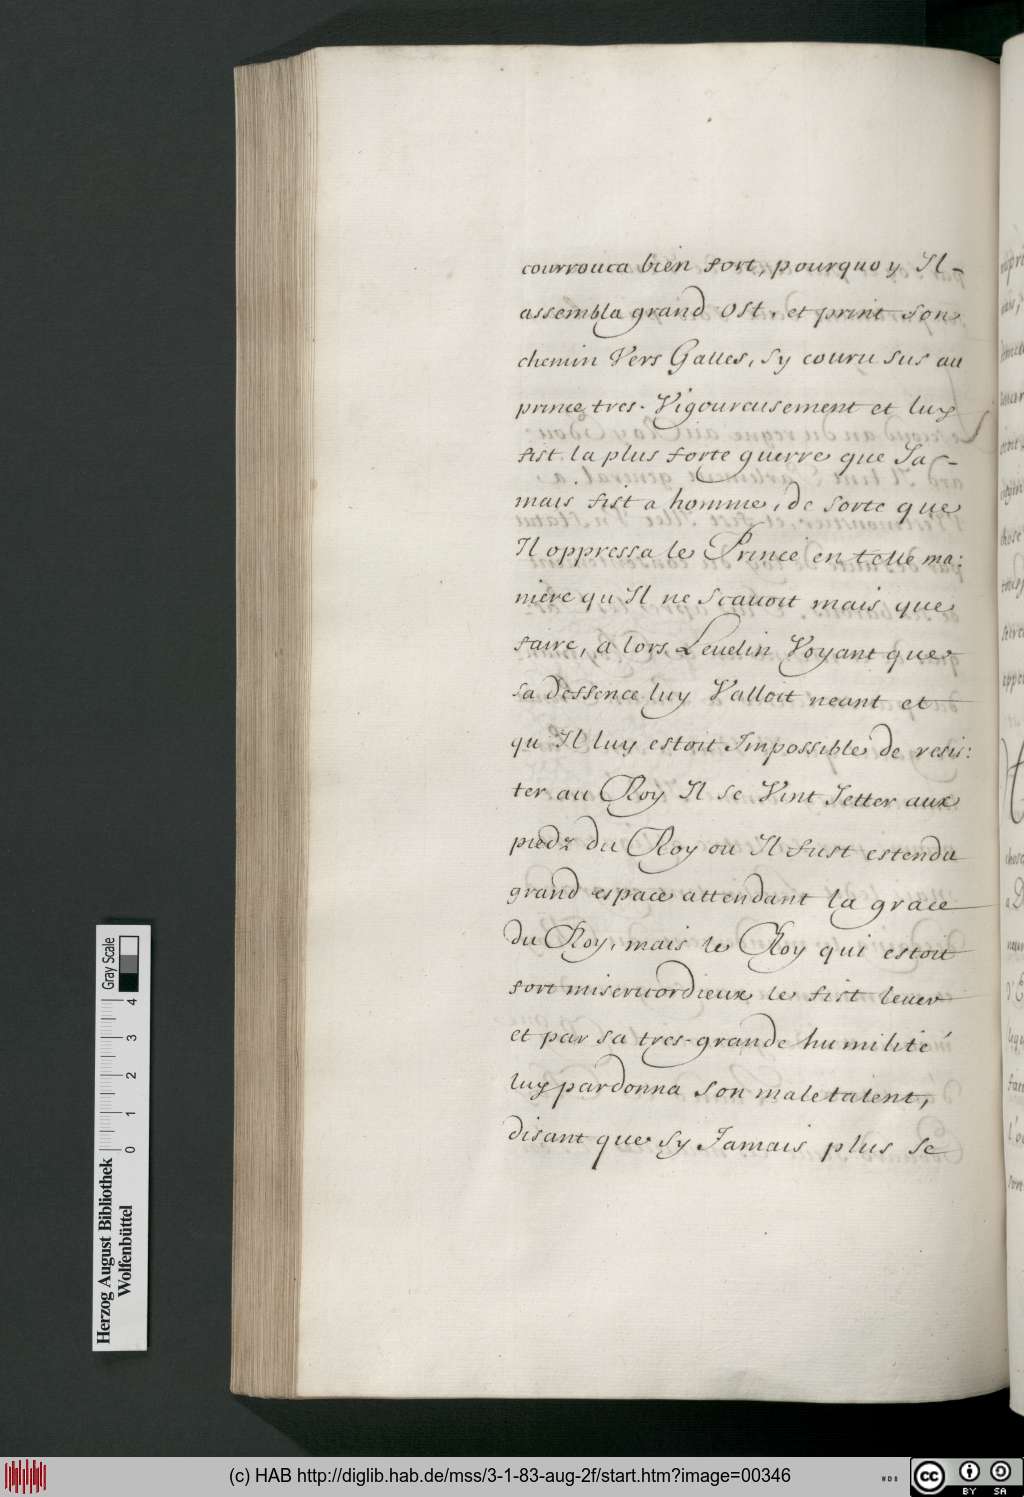 courrouca bien fort, pourquoy Il -
assembla grand Ost, et print son
chemin Vers Galles, sy couru sus au
prince tres-Vigoureusement et luy
fist la plus forte guerre que Ja-
mais fist a homme, de sorte que
Il oppressa le Prince en telle ma:
niere qu Il ne scauoit mais que
faire, a lors Leuelin Voyant que
sa deffence luy Valloit neant et
qu Il luy estoit Impossible de resis:
ter au Roy Il se Vint Jetter aux
piedz du Roy ou Il fust estendu
grand espace attendant la grace
du Roy, mais le Roy qui estoit
fort misericordieux le fist leuer
et par sa tres-grande humilité
luy pardonna son maletalent,
disant que sy Jamais plus se
Gray Scale
0 1 2 3 4
Herzog August Bibliothek
Wolfenbüttel
(c) HAB http://diglib.hab.de/mss/3-1-83-aug-2f/start.htm?image=00346
WDB
cc BY SA